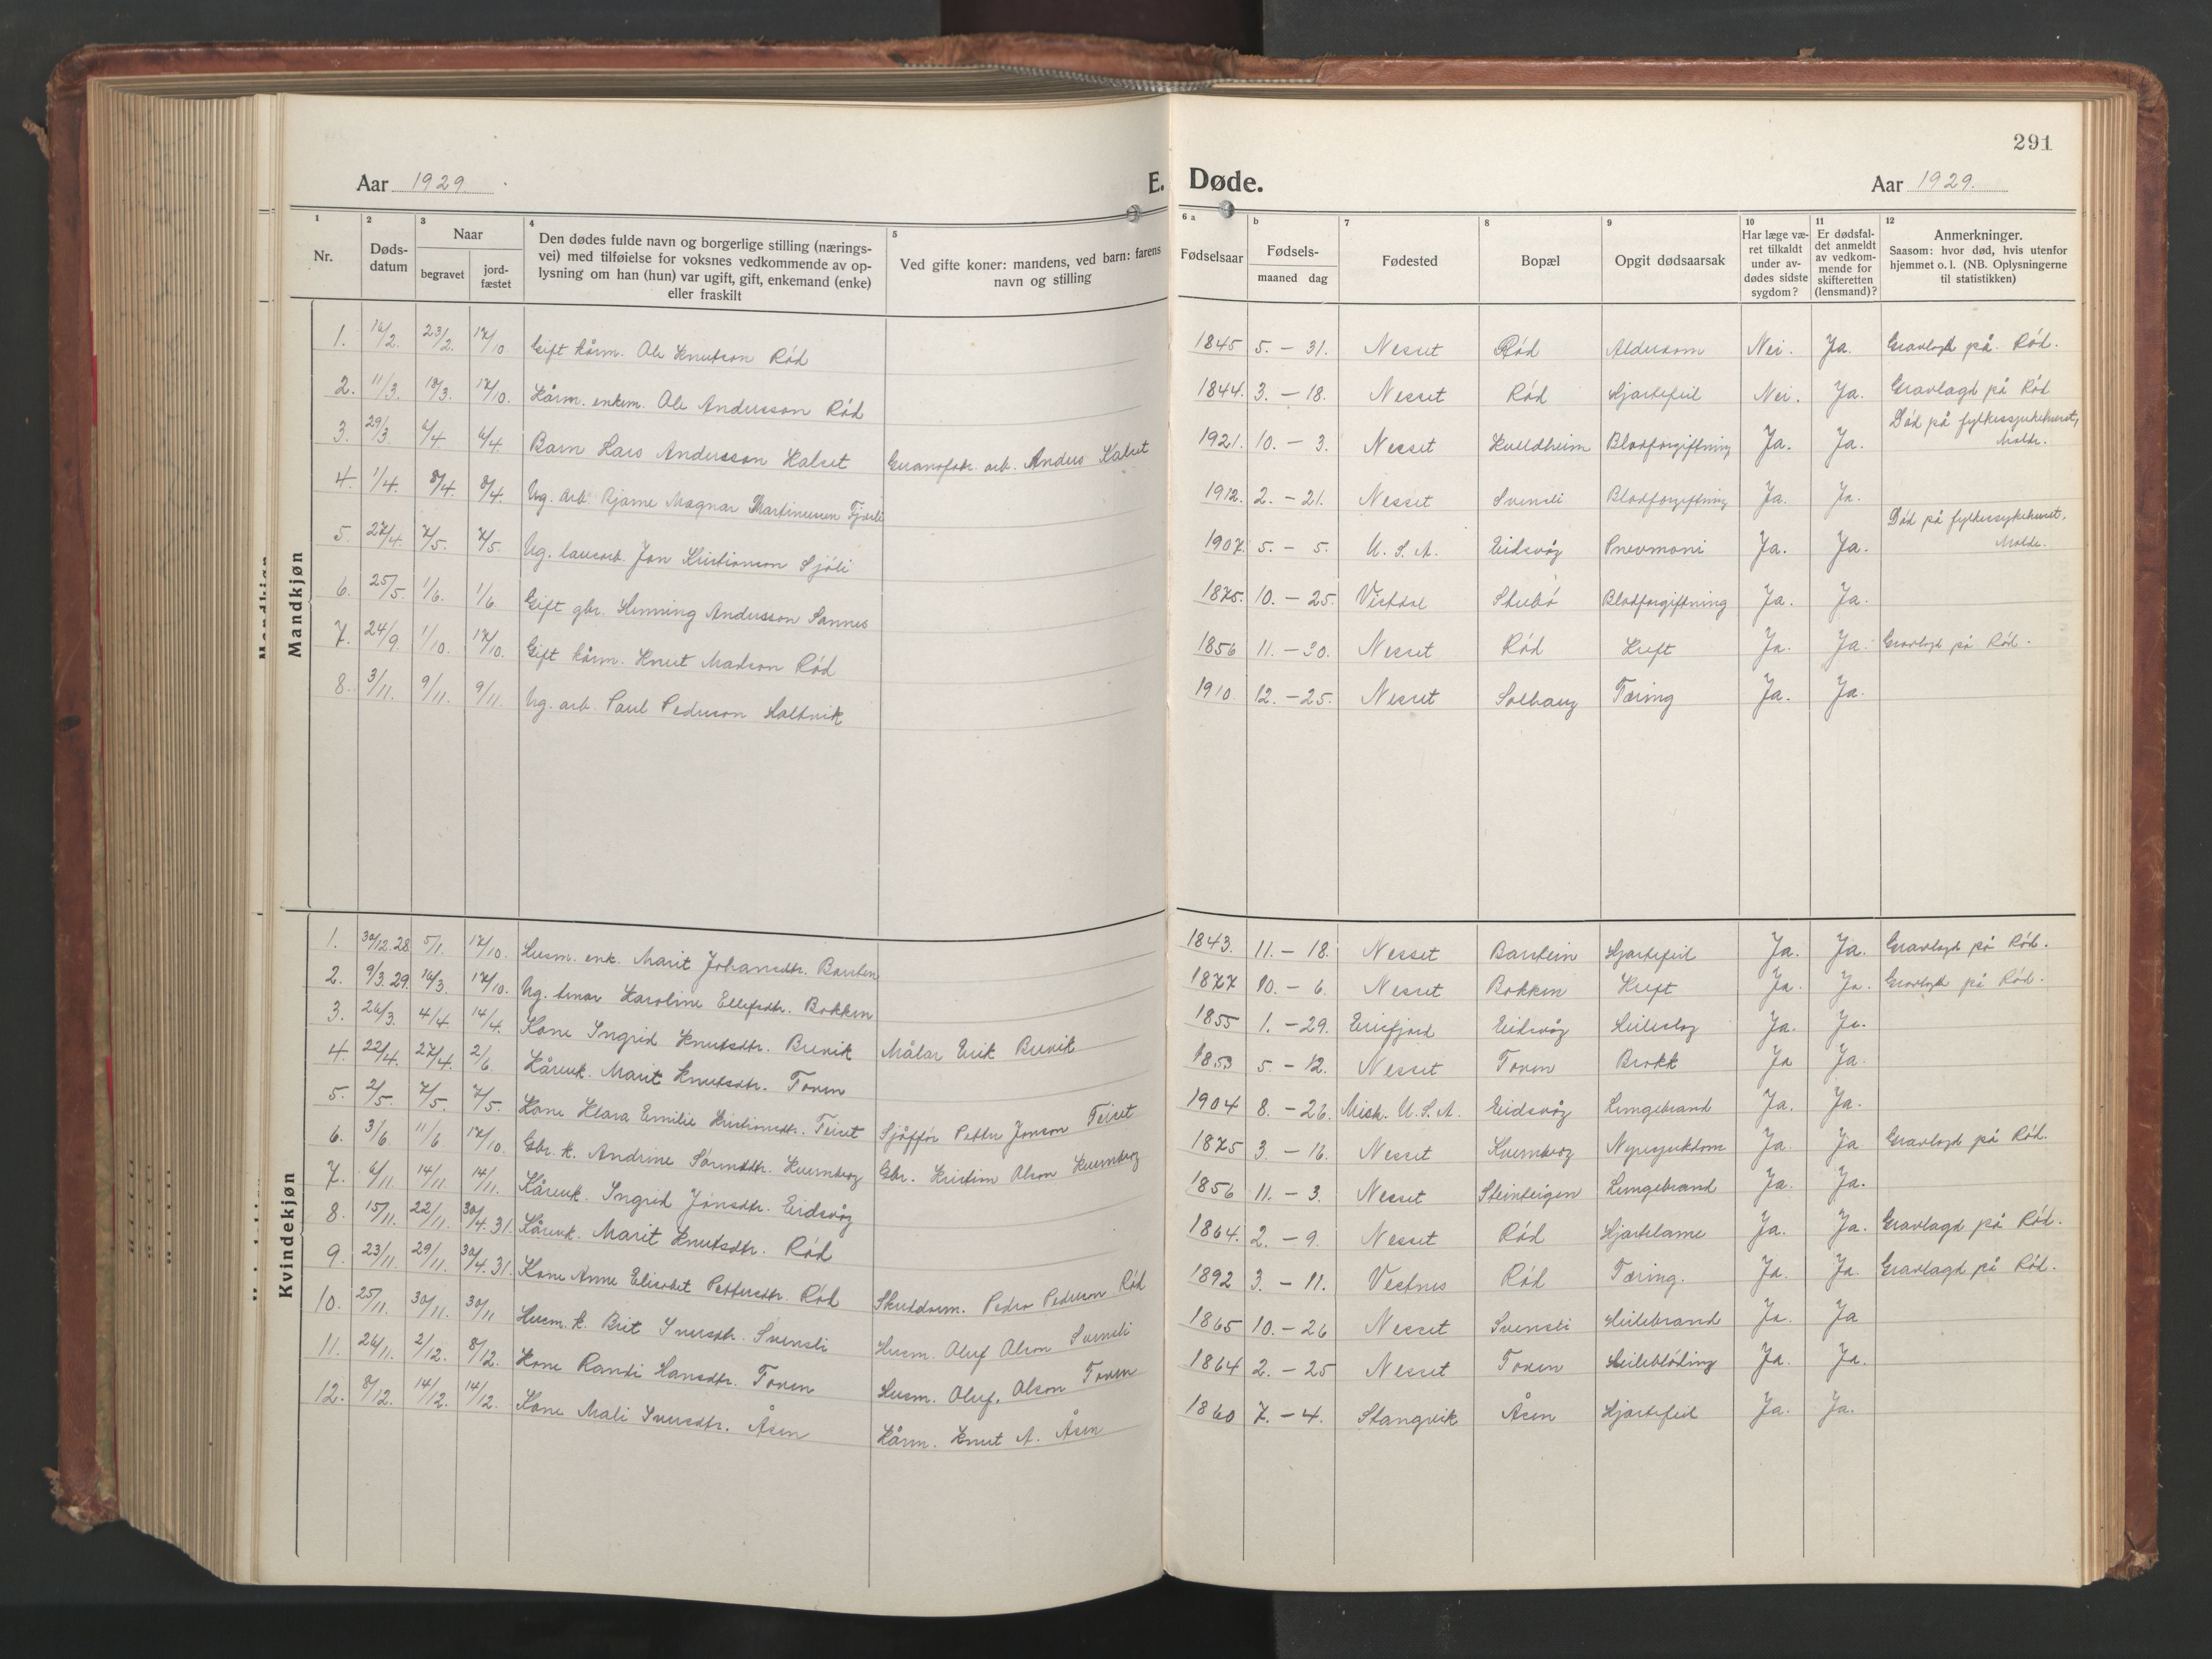 291
Aar 1929.
E. Døde.
Aar 1929.
1 2 3 4 5 6 a b 7 8 9 10 11 12
Nr.
Døds-
datum
Naar
begravet
jord-
fæstet
Den dødes fulde navn og borgerlige stilling (nærings-
vei) med tilføielse for voksnes vedkommende av op-
lysning om han (hun) var ugift, gift, enkemand (enke)
eller fraskilt
Ved gifte koner: mandens, ved barn: farens
navn og stilling
Fødselsaar
Fødsels-
maaned dag
Fødested
Bopæl
Opgit dødsaarsak
Har læge væ-
ret tilkaldt
under av-
dødes sidste
sygdom?
Er dødsfal-
det anmeldt
av vedkom-
mende for
skifteretten
(lensmand)?
Anmerkninger.
Saasom: hvor død, hvis utenfor
hjemmet o. l. (NB. Oplysningerne
til statistikken)
Mandkjøn
1. 16/2. 23/2. 17/10 Gift kårm. Ole Knutson Rød 1845 5. – 31. Nesset Rød Alderdom Nei. Ja. Gravlagd på Rød.
2. 11/3. 18/3. 17/10. Kårm. enkem. Ole Andersson Rød 1844. 3. – 18. Nesset Rød Hjartefeil Nei. Ja. Gravlagd på Rød
3. 29/3 6/4 6/4. Barn Lars Andersson Halset Guanofabr. arb. Anders Halset 1921. 10. – 3. Nesset Blodforgiftning Ja. Ja. Død på fylkessjukehuset, Molde.
4. 1/4. 8/4. 8/4. Ug. arb. Bjarne Magnar Martinussen Fjørli 1912. 2. – 21. Nesset Svensli Blodforgiftning Ja. Ja.
5. 27/4. 7/5. 7/5. Ug. lausarb. Jon Kristianson Sjøli 1907. 5. – 5. U. S. A. Eidsvåg Pnevmoni Ja. Ja. Død på fylkessykehuset, Molde.
6. 25/5. 1/6. 1/6 Gift gbr. Henning Andersson Sannes 1875. 10. – 25. Vistdal Stubø Blodforgiftning Ja. Ja.
7. 24/9. 1/10. 17/10. Gift kårm. Knut Madson Rød 1856 11. – 30. Nesset Rød Kreft Ja. Ja. Gravlagd på Rød.
8. 3/11. 9/11. 9/11. Ug. arb. Paul Pederson Holtvik 1910. 12. – 25. Nesset Solhaug Tæring Ja. Ja.
Kvindekjøn
1. 30/12.28. 5/1. 17/10. Husm. enk. Marit Johansdtr. Barstein 1843. 11. – 18. Nesset Barstein Hjartefeil Ja. Ja. Gravlagd på Rød.
2. 9/3.29. 16/3. 17/10. Ug. tenar Karoline Ellefsdtr. Bokken 1877 10. – 6. Nesset Bokken Kreft Ja. Ja. Gravlagd på Rød.
3. 26/3. 4/4 14/4. Kone Ingrid Knutsdtr. Brevik Målar Erik Brevik 1855 1. – 29. Erisfjord Eidsvåg Heileslag Ja. Ja.
4. 22/4. 27/4. 2/6 Kårenk. Marit Knutsdtr. Toven 1853 5. – 12. Nesset Toven Brokk Ja Ja.
5. 2/5. 7/5. 7/5. Kone Klara Emilie Kristiansdtr. Teiset Sjåffør Petter Jonson Teiset 1904 8. – 26. Mich. U. S. A. Eidsvåg Lungebrand Ja. Ja.
6. 3/6. 11/6 17/10. Gbr. k. Andrine Sørensdtr. Kvernberg Gbr. Kristian Olson Kvernberg 1875 3. – 16. Nesset Kvernberg Nyresjukdom Ja. Ja Gravlagd på Rød.
7. 6/11. 14/11. 14/11. Kårenk. Ingrid Jonsdtr. Eidsvåg 1856 11. – 3. Nesset Steinteigen Lungebrand Ja. Ja.
8. 15/11. 22/11. 30/4.31. Kårenk. Marit Knutsdtr. Rød 1864. 2. – 9. Nesset Rød Hjartelame Ja. Ja. Gravlagd på Rød.
9. 23/11. 29/11. 30/4.31. Kone Anne Elisabet Pettersdtr. Rød Pedro Pederson Rød 1892 3. – 11. Vestnes Rød Tæring. Ja. Ja. Gravlagd på Rød.
10. 25/11. 30/11. 30/11 Husm. k. Brit Iversdtr. Svensli Husm. Oluf Olson Svensli 1865 10. – 26 Nesset Svensli Heilebrand Ja. Ja
11. 26/11. 2/12. 8/12. Kone Randi Hansdtr. Toven Husm. Oluf. Olson Toven 1864 2. – 25 Nesset Toven Heilebløding Ja. Ja.
12. 8/12. 14/12. 14/12. Kone Mali Iversdtr. Åsen Kårm. Knut A. Åsen 1860 7. – 4. Stangvik Åsen Hjartefeil Ja. Ja.